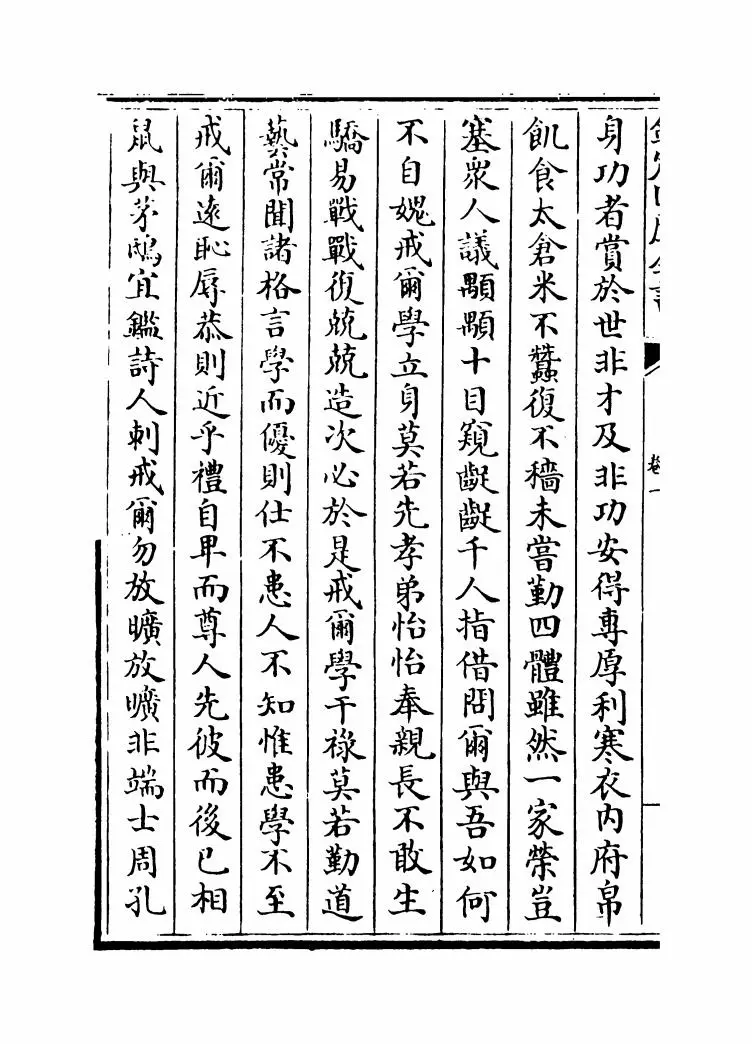 欽定四庫全書
卷一
身功者賞於世非才及非功安得專厚利寒衣内府帛
飢食太倉米不蠶復不穡未嘗勤四體雖然一家榮豈
塞衆人議顒顒十目窺齪齪千人指借問爾與吾如何
不自媿戒爾學立身莫若先孝弟怡怡奉親長不敢生
驕易戰戰復兢兢造次必於是戒爾學干祿莫若勤道
藝常聞諸格言學而優則仕不患人不知惟患學不至
戒爾逺恥辱恭則近乎禮自卑而尊人先彼而後已相
鼠與茅鴟宜鑑詩人刺戒爾勿放曠放曠非端士周孔